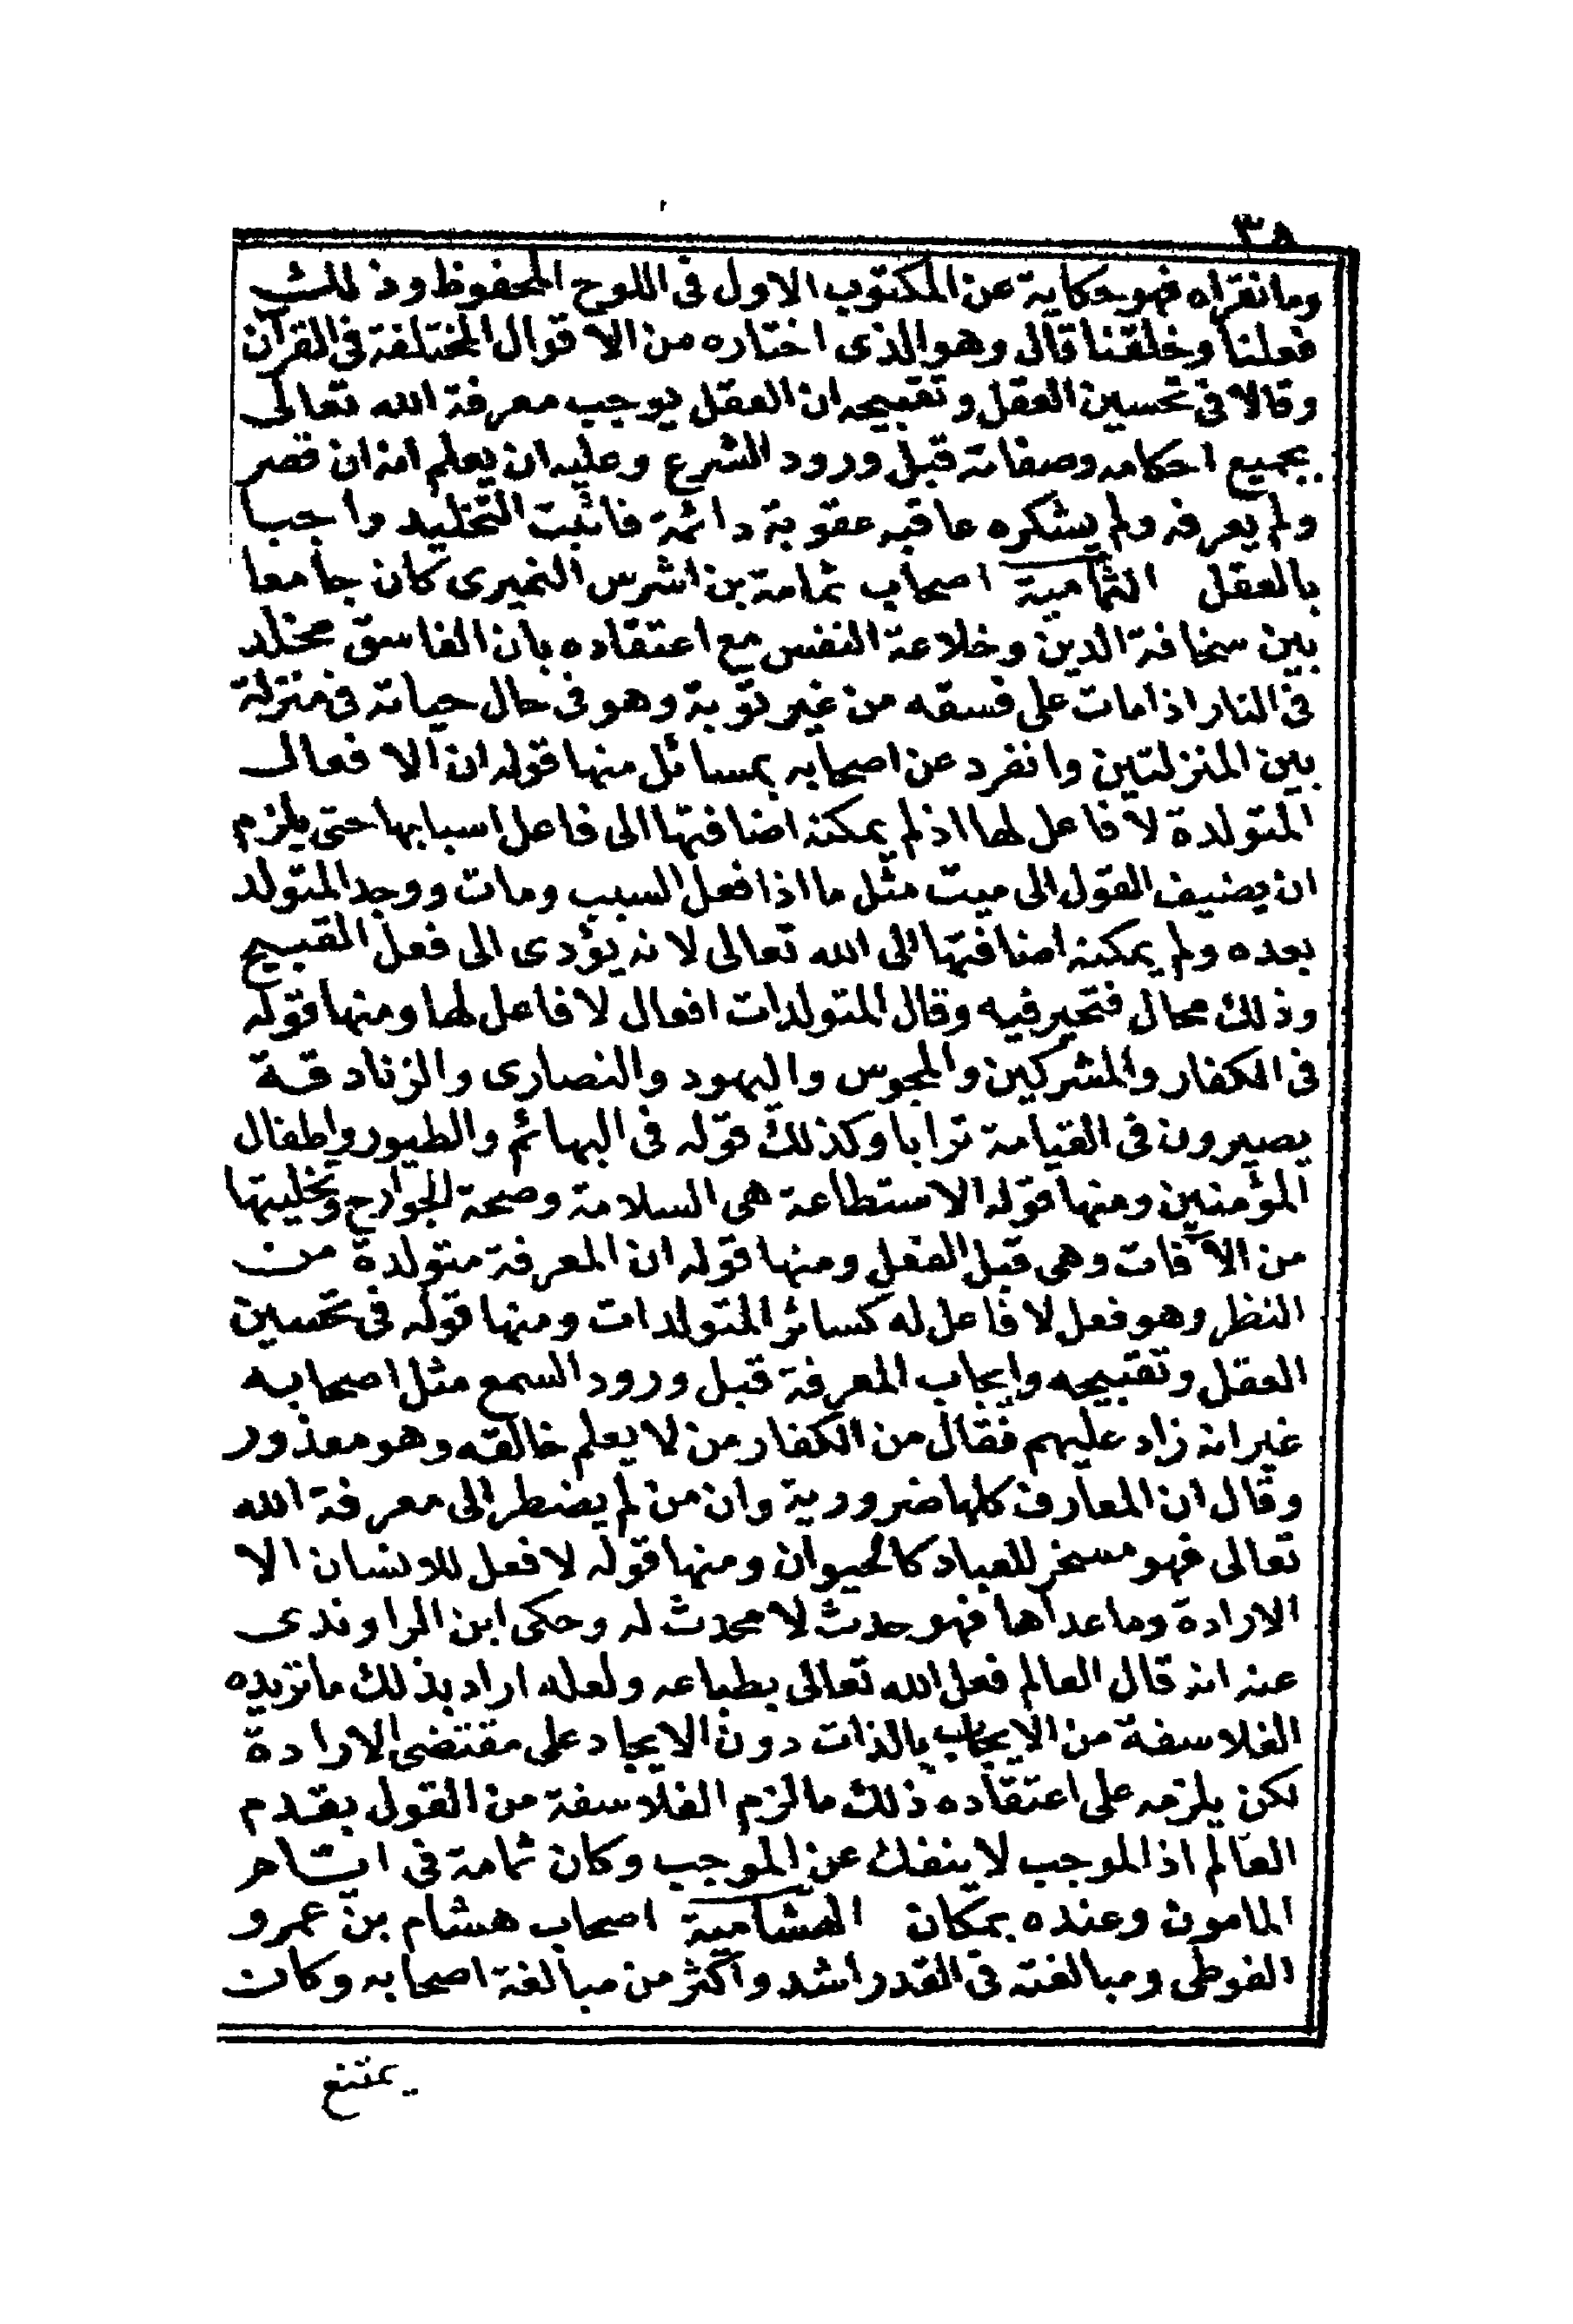 ٣٨
وما نقرأه فهو حكاية عن المكتوب الاول في اللوح المحفوظ وذلك
فعلنا وخلقنا قال وهو الذى اختاره من الاقوال المختلفة في القرآن
وقالا في تحسين العقل وتقبيحه ان العقل يوجب معرفة الله تعالى
بجميع احكامه وصفاته قبل ورود الشرع وعليه ان يعلم انه ان قصر
ولم يعرفه ولم يشكره عاقبه عقوبة دائمة فاثبت التخليد واجبا
بالعقل الثمامية اصحاب ثمامة بن اشرس النميرى كان جامعا
بين سخافة الدين وخلاعة النفس مع اعتقاده بان الفاسق مخلد
في النار اذا مات على فسقه من غير توبة وهو في حال حياته في منزلة
بين المنزلتين وانفرد عن اصحابه بمسائل منها قوله ان الافعال
المتولدة لا فاعل لها اذ لم يمكنه اضافتها الى فاعل اسبابها حتى يلزم
ان يضيف القول الى ميت مثل ما اذا فعل السبب ومات ووجد المتولد
بعده ولم يمكنه اضافتها الى الله تعالى لانه يؤدى الى فعل القبيح
وذلك محال فتحير فيه وقال المتولدات افعال لا فاعل لها ومنها قوله
في الكفار والمشركين والمجوس واليهود والنصارى والزنادقة
يصيرون في القيامة ترابا وكذلك قوله في البهائم والطيور واطفال
المؤمنين ومنها قوله الاستطاعة هى السلامة وصحة الجوارح وتخليتها
من الآفات وهى قبل الفعل ومنها قوله ان المعرفة متولدة من
النظر وهو فعل لا فاعل له كسائر المتولدات ومنها قوله في تحسين
العقل وتقبيحه وايجاب المعرفة قبل ورود السمع مثل اصحابه
غير انه زاد عليهم فقال من الكفار من لا يعلم خالقه وهو معذور
وقال ان المعارف كلها ضرورية وان من لم يضطر الى معرفة الله
تعالى فهو مسخر للعباد كالحيوان ومنها قوله لا فعل للانسان الا
الارادة وما عداها فهو حدث لا محدث له وحكى ابن الراوندى
عنه انه قال العالم فعل الله تعالى بطباعه ولعله اراد بذلك ما تريده
الفلاسفة من الايجاب بالذات دون الايجاد على مقتضى الارادة
لكن يلزمه على اعتقاده ذلك ما لزم الفلاسفة من القول بقدم
العالم اذ الموجب لا ينفك عن الموجب وكان ثمامة في ايام
المامون وعنده بمكان الهشامية اصحاب هشام بن عمرو
الفوطى ومبالغته في القدر اشد واكثر من مبالغة اصحابه وكان
يمتنع